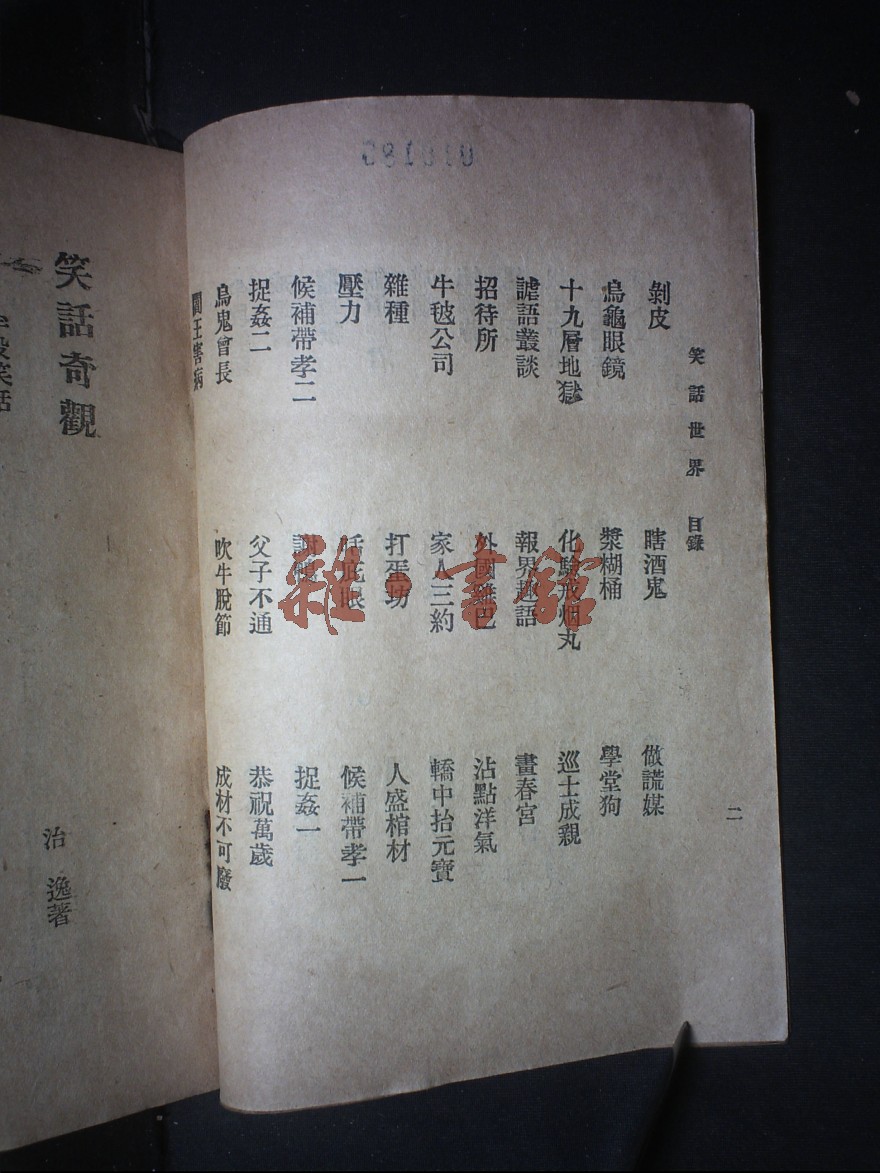 081010
笑話世界 目錄
二
剝皮
瞎酒鬼
做謊媒
烏龜眼鏡
漿糊桶
學堂狗
十九層地獄
化騐戒烟丸
巡士成親
謔語叢談
報界趣語
畫春宮
招待所
外國雞巴
沾點洋氣
牛毯公司
家人三約
轎中抬元寶
雜種
打蛋坊
人盛棺材
壓力
底眼
候補帶孝一
候補帶孝二
捉姦一
捉姦二
父子不通
恭祝萬歲
烏鬼會長
吹牛脫節
成材不可廢
閻王害病
雜·書館
笑話奇觀
治逸著
笑話